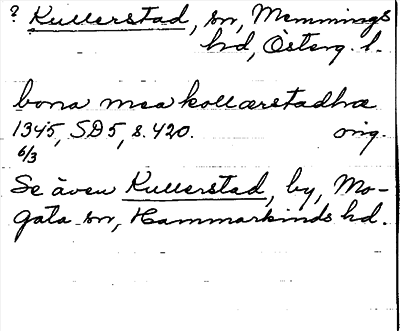 ? Kullerstad, sn, Memmings
hd, Österg. l.
bona mea kollærstadhæ
1345, SD5, s. 420. orig.
6/3
Se även Kullerstad, by, Mo-
gata sn, Hammarkinds hd.